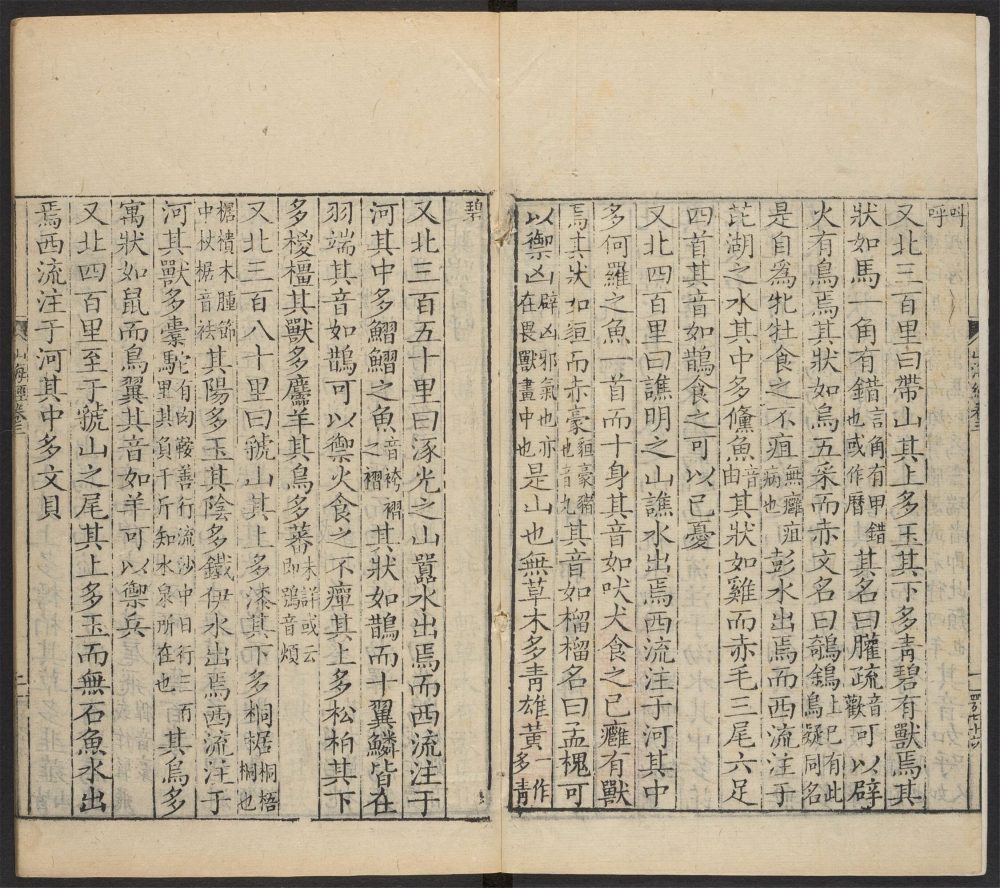 叫呼
又北三百里曰帶山其上多玉其下多青碧有獸焉其
狀如馬一角有錯言角有甲錯也或作厝其名曰䑏疏音歡可以辟
火有鳥焉其狀如烏五采而赤文名曰鵸鵌上已有此鳥疑同名
是自為牝牡食之不疽無癰疽病也彭水出焉而西流注于
芘湖之水其中多儵魚音由其狀如雞而赤毛三尾六足
四首其音如鵲食之可以已憂
又北四百里曰譙明之山譙水出焉西流注于河其中
多何羅之魚一首而十身其音如吠犬食之已癰有獸
焉其狀如貆而赤豪貆豪豬也音丸其音如榴榴名曰孟槐可
以禦凶辟凶邪氣也亦在畏獸畫中也是山也無草木多青雄黃一作多青
碧
又北三百五十里曰涿光之山嚻水出焉而西流注于
河其中多鰼鰼之魚音袴褶之褶其狀如鵲而十翼鱗皆在
羽端其音如鵲可以禦火食之不癉其上多松柏其下
多椶橿其獸多麢羊其鳥多蕃未詳或云即鴞音煩
又北三百八十里曰虢山其上多漆其下多桐椐桐梧桐也
椐樻木腫節中杖椐音袪其陽多玉其陰多鐵伊水出焉西流注于
河其獸多橐駝有肉鞍善行流沙中日行三百里其負千斤知水泉所在也其鳥多
寓狀如鼠而鳥翼其音如羊可以禦兵
又北四百里至于虢山之尾其上多玉而無石魚水出
焉西流注于河其中多文貝
山海經卷三
二